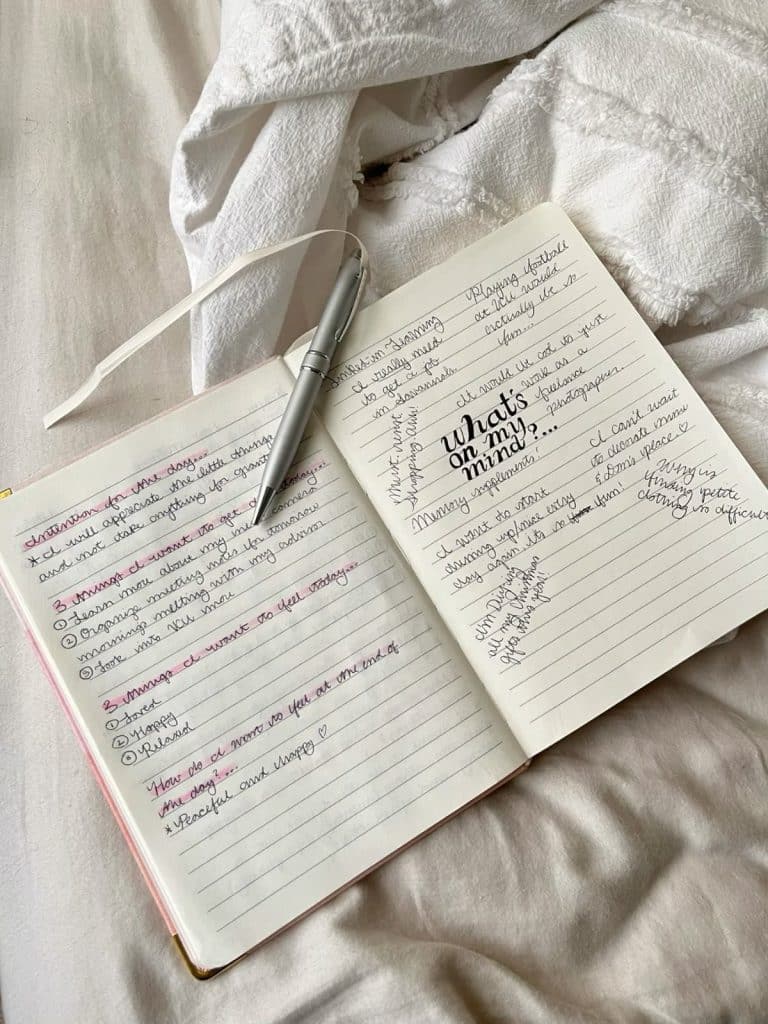 Intention for the day...
* I will appreciate the little things
and not take anything for granted
3 things I want to get today...
① Learn more about my camera
② Organize meeting notes for tomorrow
mornings meeting with my advisor
③ Look into VU more
3 things I want to feel today...
① Loved
② Happy
③ Relaxed
How do I want to feel at the end of
the day?...
* Peaceful and happy ♡
in Learning
I really need
to get a job
in Savannah.
Playing football
at would
actually be so
fun...
It would be cool to just
work as a
freelance
photographer.
Must resist
shopping
what's
on my
mind?...
Memory supplements!
I can't wait
to decorate mine
& Dom's place. ♡
Why is
finding petite
clothing so difficult
I want to start
dressing up/nice every
day again. It's so fun!
I'm DIYing
all my Christmas
gifts this year!